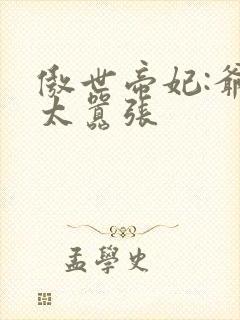 傲世帝妃:爺
太囂張
孟學史